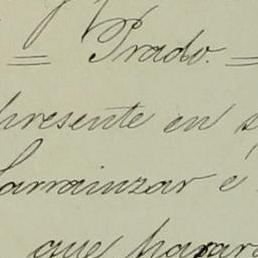 = Prado. =
presente en s
Larrainzar é
que harar